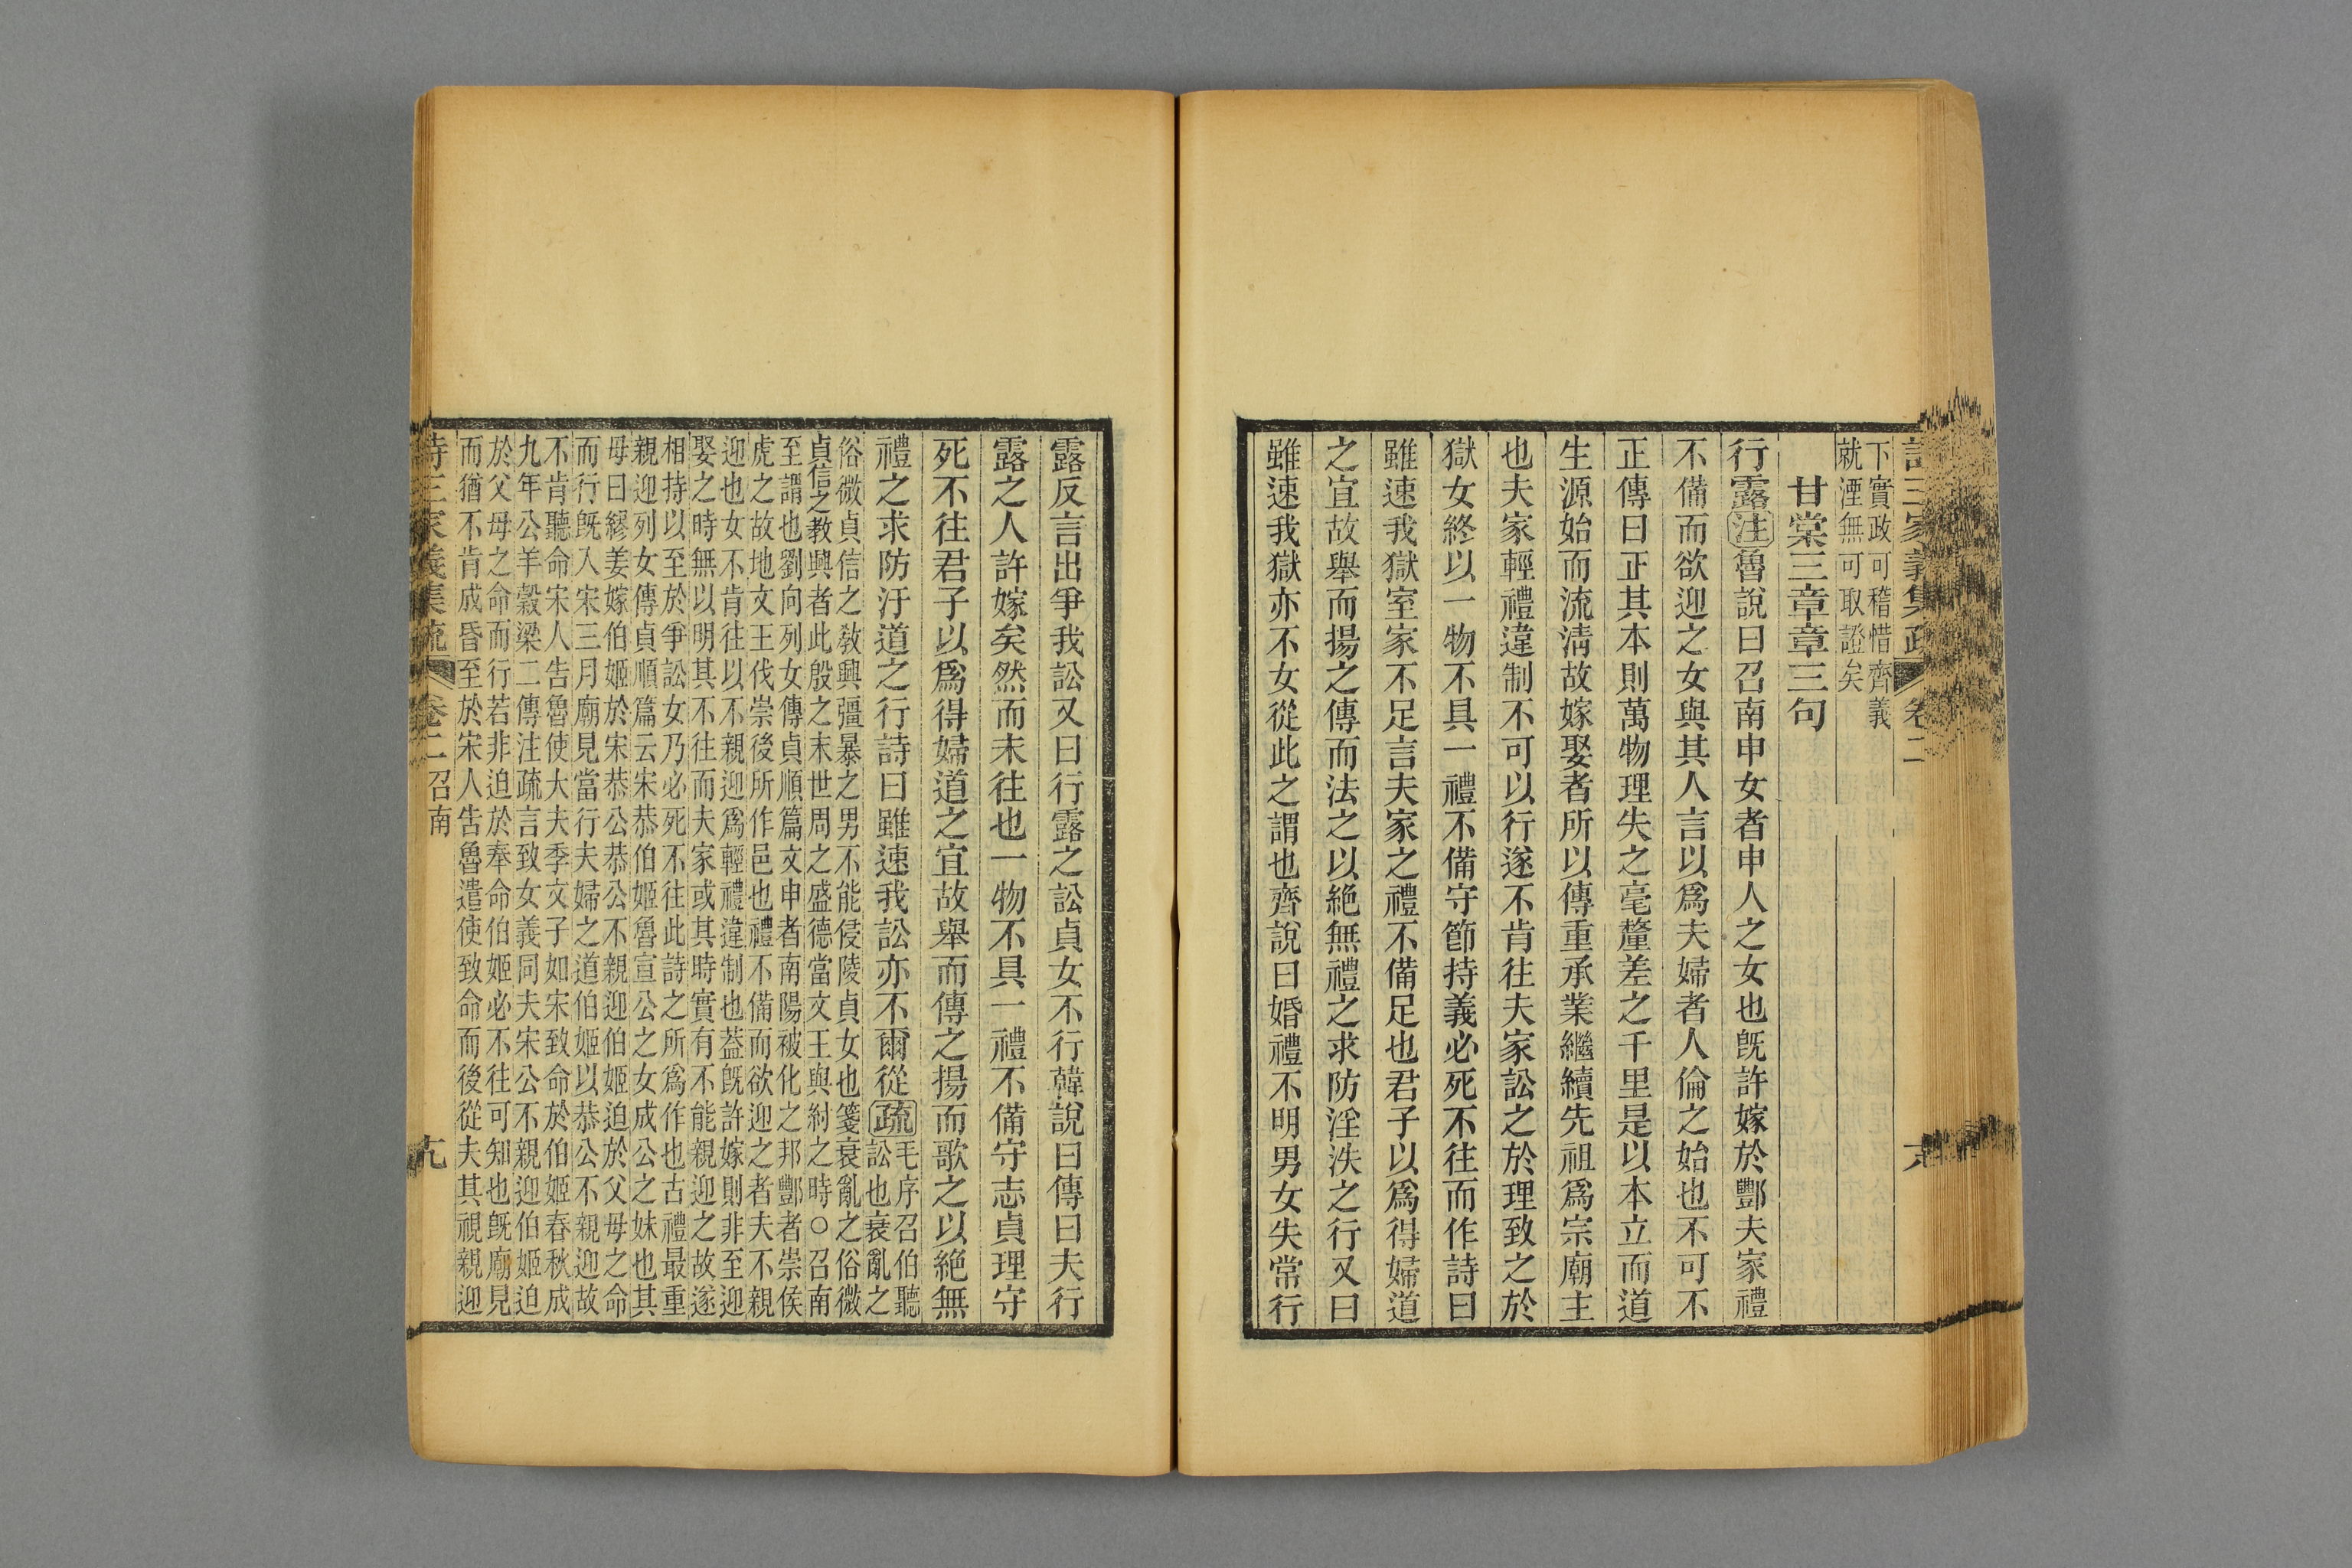 詩三家義集疏 卷二
下實政可稽惜齊義
就湮無可取證矣
甘棠三章章三句
行露注魯說曰召南申女者申人之女也旣許嫁於酆夫家禮
不備而欲迎之女與其人言以爲夫婦者人倫之始也不可不
正傳曰正其本則萬物理失之毫釐差之千里是以本立而道
生源始而流淸故嫁娶者所以傳重承業繼續先祖爲宗廟主
也夫家輕禮違制不可以行遂不肯往夫家訟之於理致之於
獄女終以一物不具一禮不備守節持義必死不往而作詩曰
雖速我獄室家不足言夫家之禮不備足也君子以爲得婦道
之宜故舉而揚之傳而法之以絕無禮之求防淫泆之行又曰
雖速我獄亦不女從此之謂也齊說曰婚禮不明男女失常行
露反言出爭我訟又曰行露之訟貞女不行韓說曰傳曰夫行
露之人許嫁矣然而未往也一物不具一禮不備守志貞理守
死不往君子以爲得婦道之宜故舉而傳之揚而歌之以絕無
禮之求防汙道之行詩曰雖速我訟亦不爾從疏
毛序召伯聽
訟也衰亂之
俗微貞信之敎興彊暴之男不能侵陵貞女也箋衰亂之俗微
貞信之教興者此殷之末世周之盛德當文王與紂之時○召南
至謂也劉向列女傳貞順篇文申者南陽被化之邦酆者崇侯
虎之故地文王伐崇後所作邑也禮不備而欲迎之者夫不親
迎也女不肯往以不親迎爲輕禮違制也蓋旣許嫁則非至迎
娶之時無以明其不往而夫家或其時實有不能親迎之故遂
相持以至於爭訟女乃必死不往此詩之所爲作也古禮最重
親迎列女傳貞順篇云宋恭伯姬魯宣公之女成公之妹也其
母曰繆姜嫁伯姬於宋恭公恭公不親迎伯姬迫於父母之命
而行旣入宋三月廟見當行夫婦之道伯姬以恭公不親迎故
不肯聽命宋人告魯使大夫季文子如宋致命於伯姬春秋成
九年公羊穀梁二傳注疏言致女義同夫宋公不親迎伯姬迫
於父母之命而行若非迫於奉命伯姬必不往可知也旣廟見
而猶不肯成昏至於宋人告魯遣使致命而後從夫其視親迎
詩三家義集疏 卷二 召南 十九